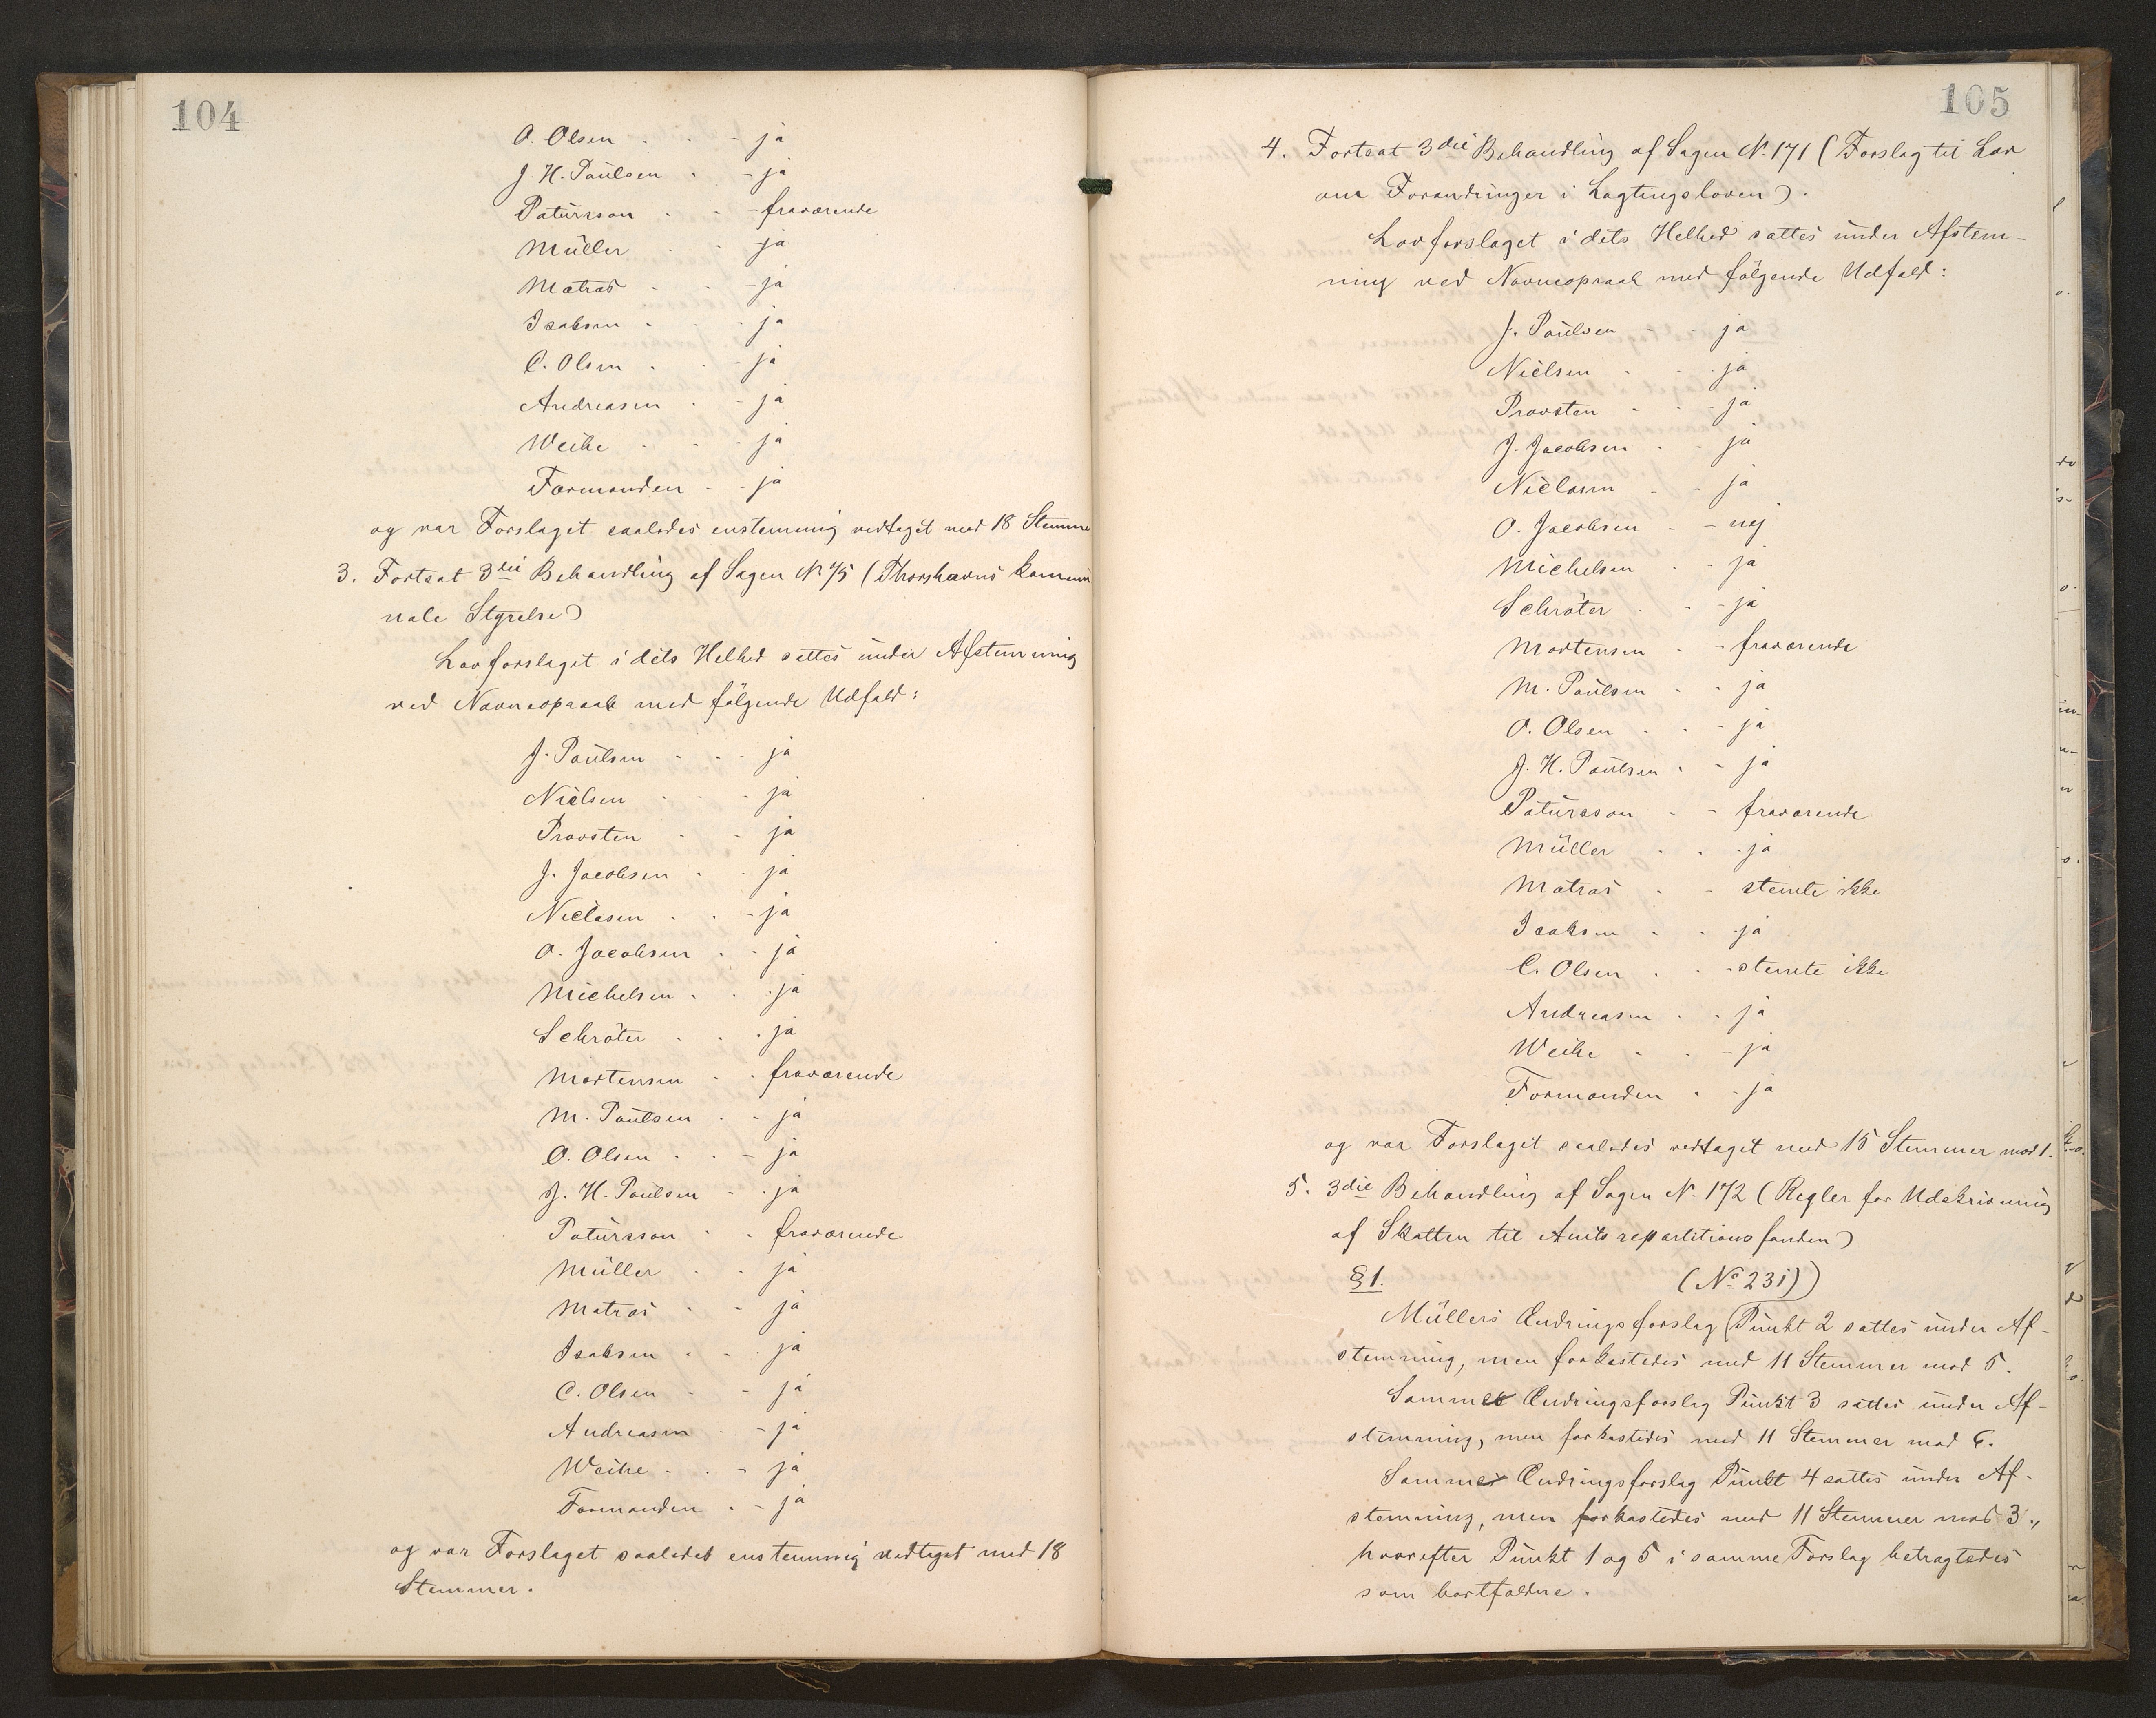 104
O. Olsen - - ja
J. H. Paulsen - - ja
Patursson - - fraværende
Müller - - ja
Matras - - ja
Isaksen - - ja
C. Olsen - - ja
Andreasen - - ja
Weihe - - ja
Formanden - - ja
og var Forslaget saaledes enstemmig vedtaget med 18 Stemmer
3. Fortsat 3die Behandling af Sagen N. 75 (Thorshavns kommu
nale Styrelse)
Lovforslaget i dets Helhed sattes under Afstemning
ved Navneopraab med følgende Udfald:
J. Paulsen - - - ja
Nielsen - - - ja
Provsten - - ja
J. Jacobsen - - ja
Niclasen - - - ja
O. Jacobsen - - ja
Michelsen - - ja
Schrøter - - ja
Mortensen - - fraværende
M. Paulsen - - ja
O. Olsen - - - ja
J. H. Paulsen - - ja
Patursson - - fraværende
Müller - - ja
Matras - - ja
Isaksen - - ja
C. Olsen - - ja
Andreasen - - ja
Weihe - - - ja
Formanden - - ja
og var Forslaget saaledes enstemmig vedtaget med 18
Stemmer.
105
4. Fortsat 3die Behandling af Sagen N. 171 (Forslag til Lov
om Forandringer i Lagtingsloven).
Lovforslaget i dets Helhed sattes under Afstem-
ning ved Navneopraab med følgende Udfald:
J. Paulsen - - ja
Nielsen - - ja
Provsten - - - ja
J. Jacobsen - - ja
Niclasen - - ja
O. Jacobsen - - nej
Michelsen - - ja
Schrøter - - - ja
Mortensen - - fraværende
M. Paulsen - - ja
O. Olsen - - - ja
J. H. Paulsen - - ja
Patursson - - fraværende
Müller - - - ja
Matras - - stemte ikke
Isaksen - - ja
C. Olsen - - - stemte ikke
Andreasen - - ja
Weihe - - - ja
Formanden - - ja
og var Forslaget saaledes vedtaget med 15 Stemmer mod 1.
5. 3die Behandling af Sagen N. 172 (Regler for Udskrivning
af Skatten til Amtsrepartitionsfonden)
§ 1. (No 231)
Müllers Ændringsforslag (Punkt 2 sattes under Af-
stemning, men forkastedes med 11 Stemmer mod 5.
Sammes Ændringsforslag Punkt 3 sattes under Af-
stemning, men forkastedes med 11 Stemmer mod 6.
Sammes Ændringsforslag Punkt 4 sattes under Af-
stemning, men forkastedes med 11 Stemmer mod 3.,
hvorefter Punkt 1 og 5 i samme Forslag betragtedes
som bortfaldne.